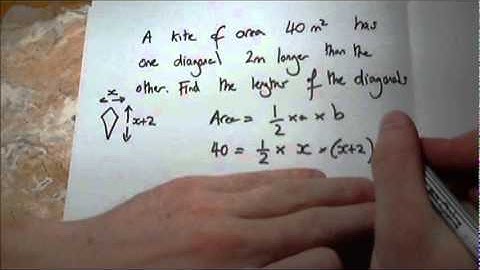 A kite of area 40 m²  has
one diagonal 2m longer than the
other. Find the lengths of the diagonals
x
x+2
Area = 1/2 × a × b
40 = 1/2 × x × (x+2)